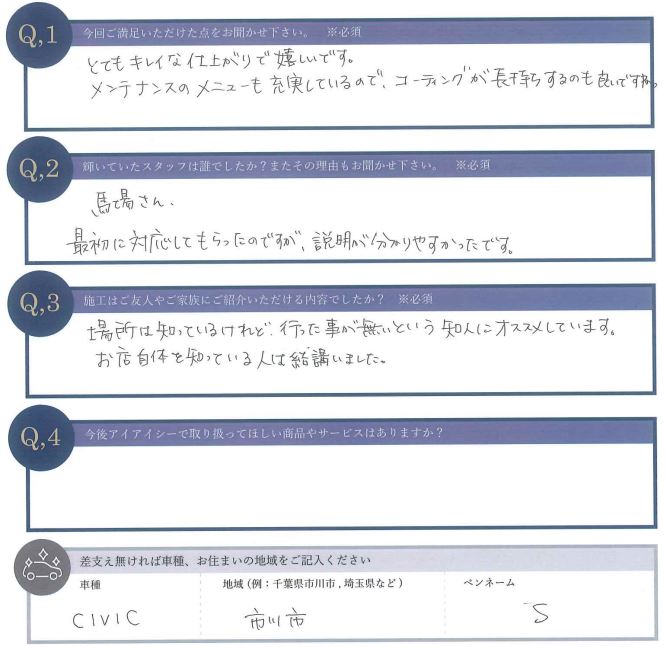 Q,1 今回ご満足いただけた点をお聞かせ下さい。 ※必須
とてもキレイな仕上がりで嬉しいです。
メンテナンスのメニューも充実しているので、コーティングが長持ちするのも良いですね。
Q,2 輝いていたスタッフは誰でしたか？またその理由もお聞かせ下さい。 ※必須
馬場さん、
最初に対応してもらったのですが、説明が分かりやすかったです。
Q,3 施工はご友人やご家族にご紹介いただける内容でしたか？ ※必須
場所は知っているけれど、行った事が無いという知人にオススメしています。
お店自体を知っている人は結講いました。
Q,4 今後アイアイシーで取り扱ってほしい商品やサービスはありますか？
差支え無ければ車種、お住まいの地域をご記入ください
車種 地域（例：千葉県市川市，埼玉県など） ペンネーム
CIVIC 市川市 S